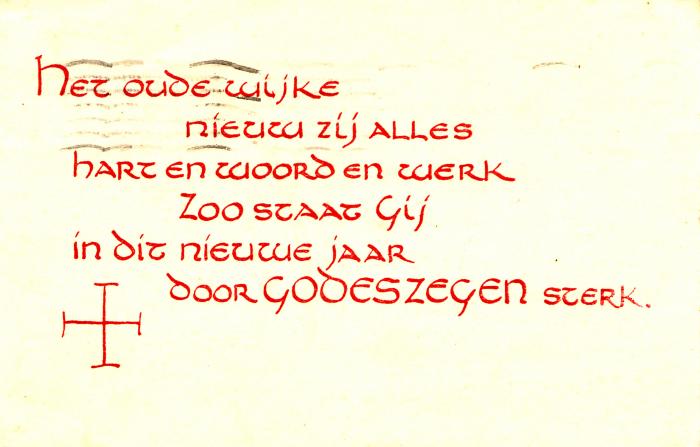 Het oude wijke
nieuw zij alles
hart en woord en werk
Zoo staat Gij
in dit nieuwe jaar
door GODESZEGEN sterk.